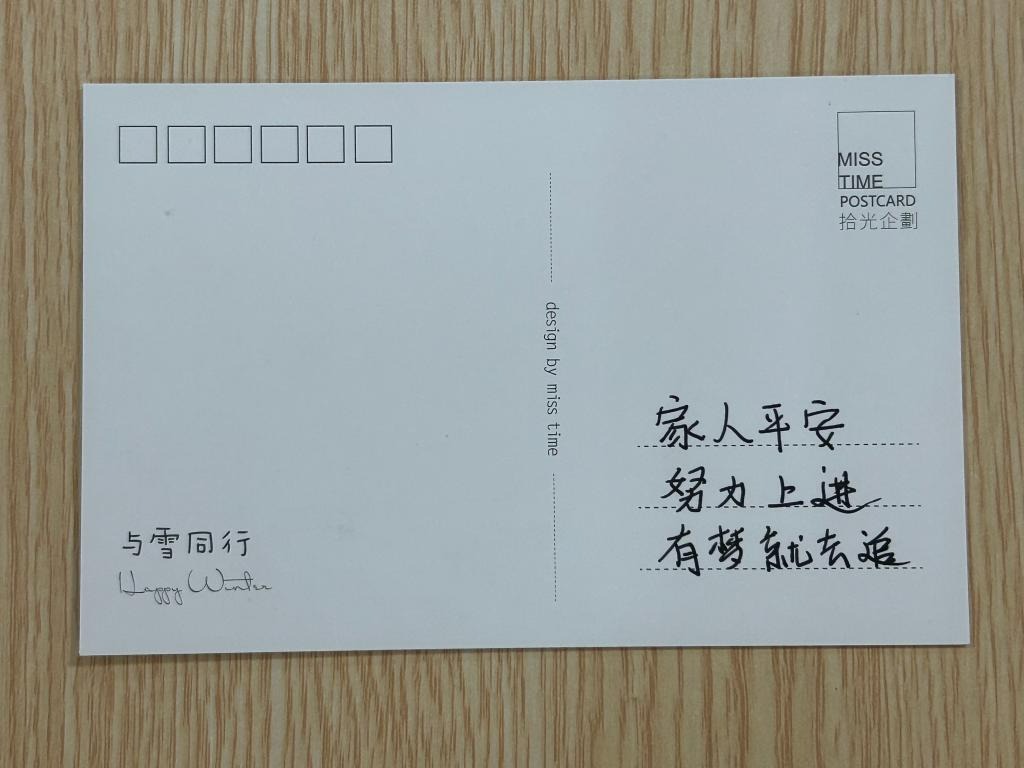 MISS
TIME
POSTCARD
拾光企劃
design by miss time
家人平安
努力上进
有梦就去追
与雪同行
Happy Winter